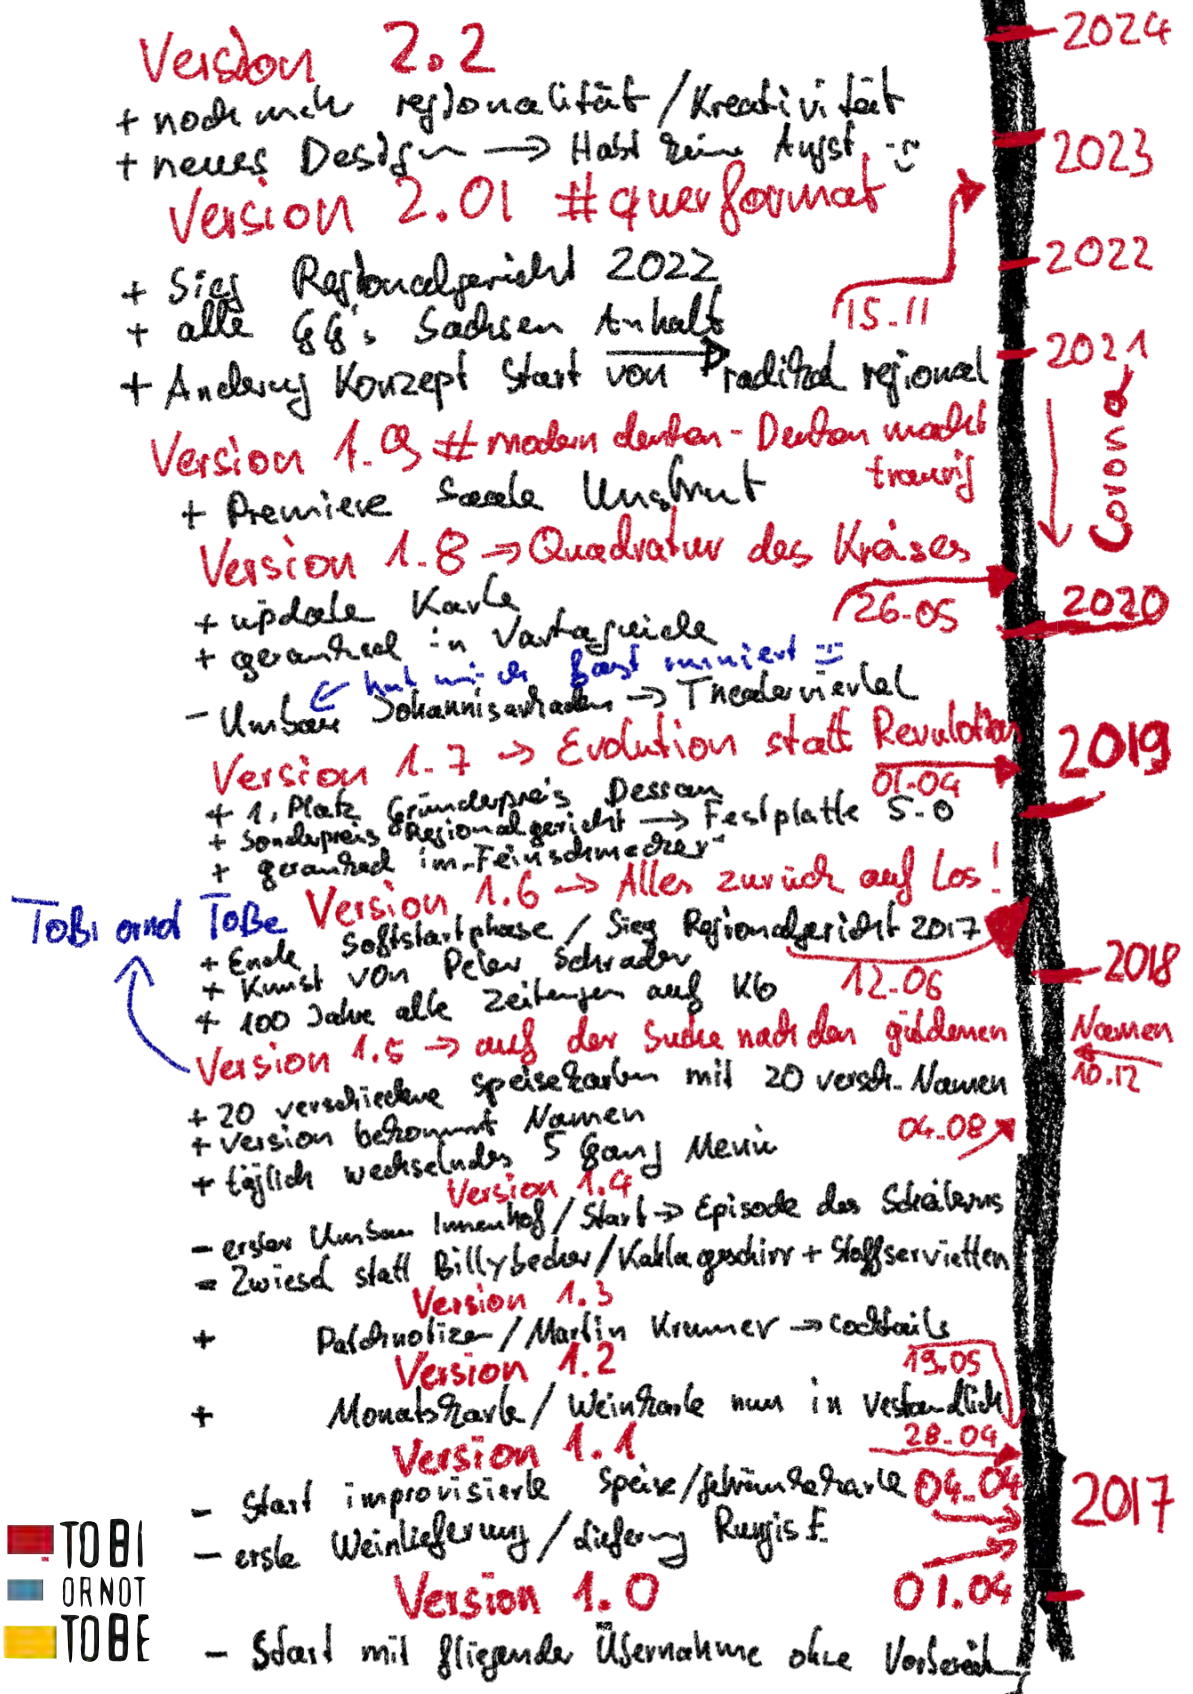 2024
Version 2.2
+ noch mehr regionalität / Kreativität
+ neues Design → Habt keine Angst :)
2023
Version 2.01 #querformat
2022
+ Sieg Regionalgericht 2022
15.11
+ alle GG's Sachsen Anhalt
+ Änderung Konzept Start von → radikal regional
2021
Corona
Version 1.9 # modern denken - Denken macht
traurig
+ Premiere Saale Unstrut
Version 1.8 → Quadratur des Kreises
26.05
2020
+ update Karte
+ geranked in Varta
← hat mich fast ruiniert :)
- Umbau → Theaterviertel
Version 1.7 → Evolution statt Revulotion
01.04
2019
+ 1. Platz Gründerpreis Dessau
+ Sonderpreis Regionalgericht → Festplatte 5.0
+ gerankted im "Feinschmecker"
Version 1.6 → Alles zurück auf Los!
ToBi ornot ToBe
+ Ende Softstartphase / Sieg Regionalgericht 2017
12.06
2018
+ Kunst von Peter Schrader
+ 100 Jahre alte Zeitungen auf Klo
Version 1.5 → auf der Suche nach den güldenen Namen
10.12
+ 20 verschiedene speisekarten mit 20 versch. Namen
+ Version bekommt Namen
04.08
+ täglich wechselndes 5 Gang Menü
Version 1.4
- erster Umbau Innenhof / Start → Episode des
- Zwiesel statt Billybecher / Kahla geschirr + Stoffservietten
Version 1.3
+ / Martin Krumer → Cocktails
Version 1.2
19.05
+ Monatskarte / Weinkarte nun in
Version 1.1
28.04
- Start improvisierte Speise/getränkekarte
04.04
2017
- erste Weinlieferung / Lieferung Rungis E.
Version 1.0
01.04
- Start mit fliegender Übernahme ohne
TOBI
ORNOT
TOBE